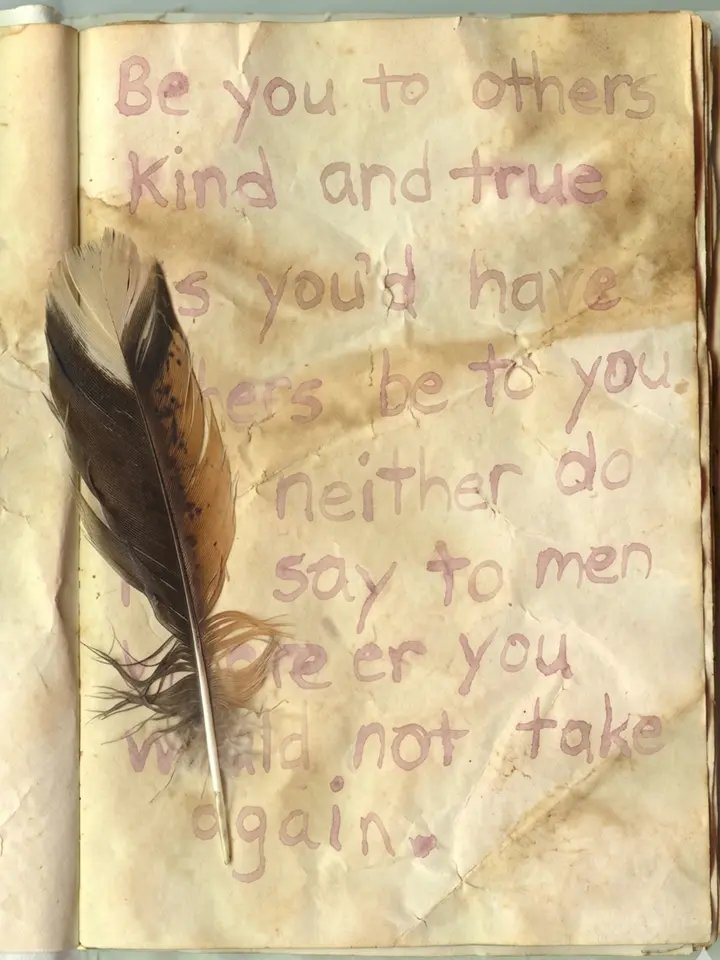 Be you to others
Kind and true
you'd have
be to you
neither do
say to men
er you
not take
again.